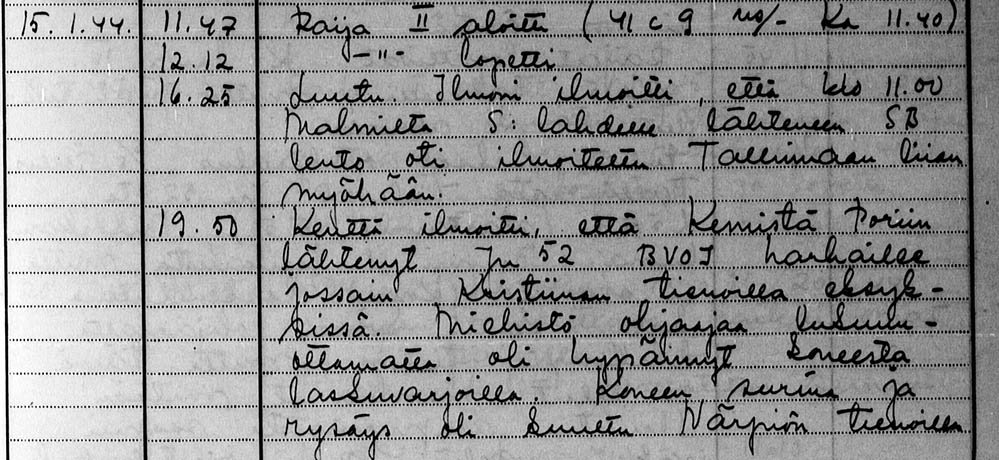 15.1.44. 11.47 Raija II aloitti ( 41 c 9 Ka 11.40)
12.12 -"- lopetti
16.25 Luutn. Ilmoni ilmoitti, että klo 11.00
Malmilta S: lahdelle lähteneen SB
lento oli ilmoitettu Tallinnaan liian
myöhään.
19.50 Kenttä ilmoitti, että Kemistä Poriin
lähtenyt Ju 52 BVOJ harhailee
jossain Kristiinan tienoilla eksyk-
sissä. Miehistö ohjaajaa lukuun-
ottamatta oli hypännyt koneesta
laskuvarjoilla. Koneen surina ja
rysäys oli kuultu Närpiön tienoilla